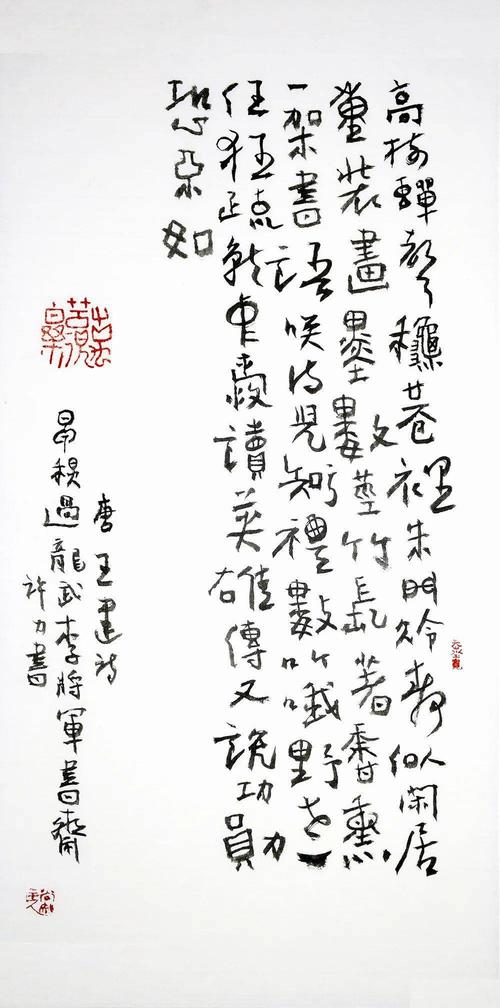 高樹蟬聲穐巷裡朱門冷静似閑居
重裝畫墨數莖竹長著香熏
一架書語咲侍兒知禮數吟野
任狂就中愛讀英雄傳又說功勛
恐不如
唐王建詩
早穐過龍武李將軍書齋
許力書